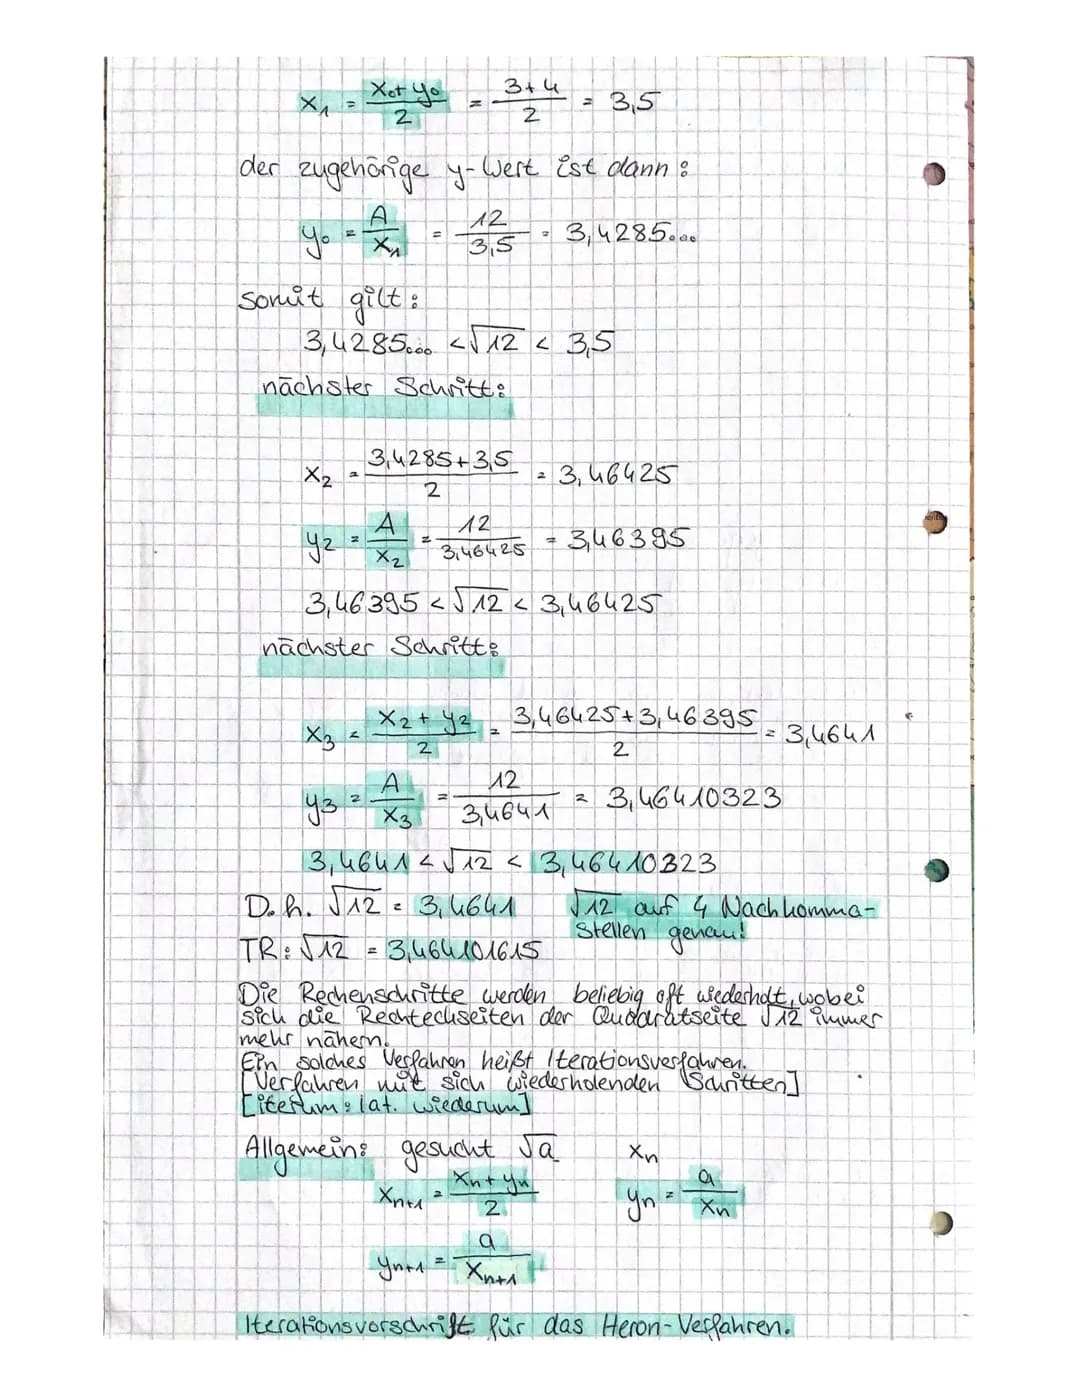 x₁ = (x₀ + y₀)/2 = (3+4)/2 = 3,5
der zugehörige y-Wert ist dann:
y₀ = A/x₁ = 12/3,5 = 3,4285...
somit gilt:
3,4285... < √12 < 3,5
nächster Schritt:
x₂ = (3,4285+3,5)/2 = 3,46425
y₂ = A/x₂ = 12/3,46425 = 3,46395
3,46395 < √12 < 3,46425
nächster Schritt:
x₃ = (x₂ + y₂)/2 = (3,46425+3,46395)/2 = 3,4641
y₃ = A/x₃ = 12/3,4641 = 3,46410323
3,4641 < √12 < 3,46410323
D.h. √12 = 3,4641 √12 auf 4 Nachkomma-
stellen genau!
TR: √12 = 3,464101615
Die Rechenschritte werden beliebig oft wiederholt, wobei
sich die Rechteckseiten der Quadratseite √12 immer
mehr nähern.
Ein solches Verfahren heißt Iterationsverfahren.
[Verfahren mit sich wiederholenden Schritten]
[iterum: lat. wiederum]
Allgemein: gesucht √a xₙ
xₙ₊₁ = (xₙ + yₙ)/2 yₙ = a/xₙ
yₙ₊₁ = a/xₙ₊₁
Iterationsvorschrift für das Heron-Verfahren.